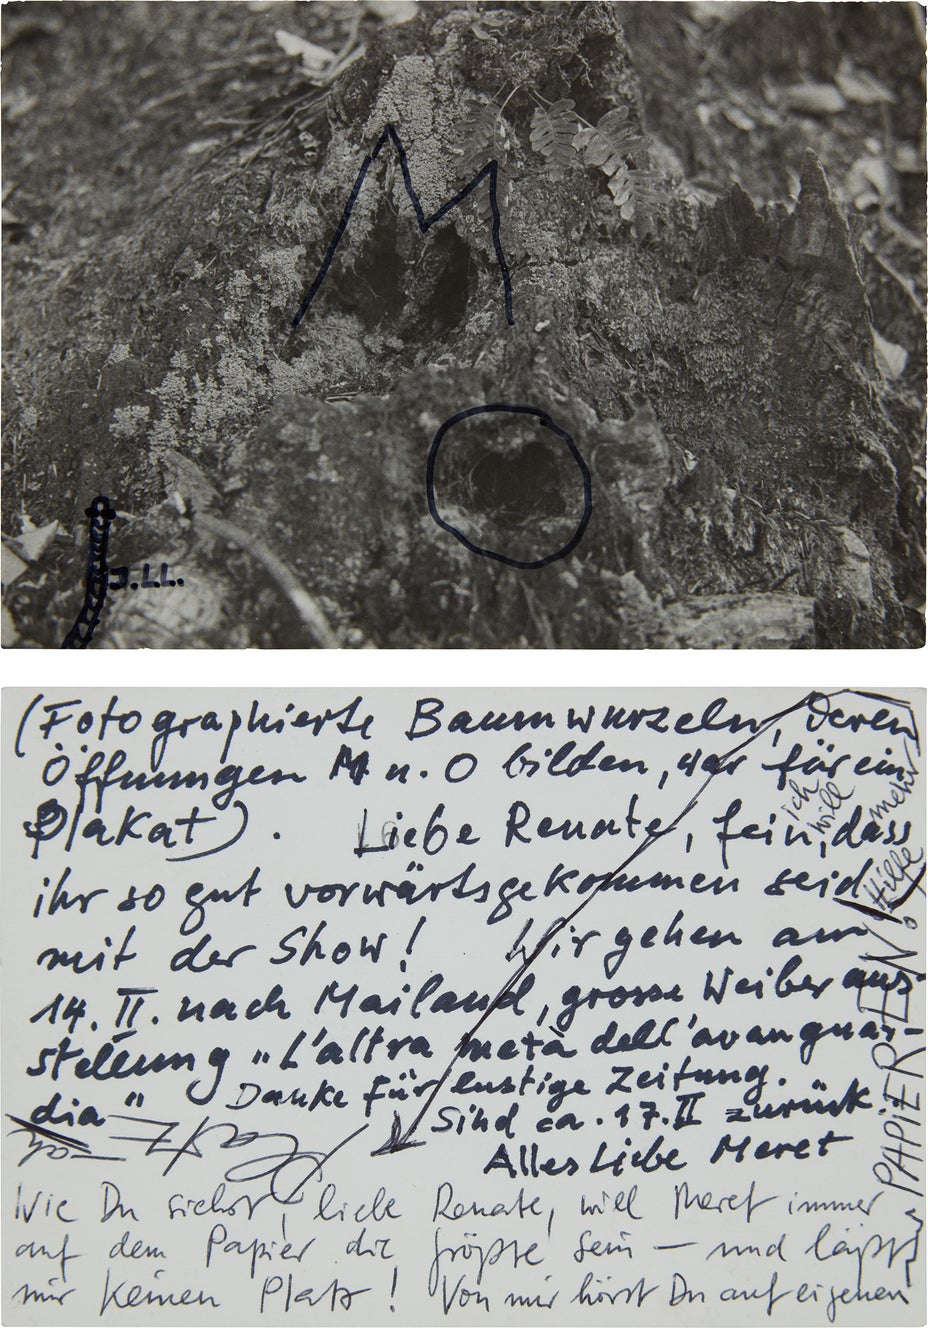 M
O
J.LL.
(Fotographierte Baumwurzeln, deren
Öffnungen M u. O bilden, war für ein
Plakat). Liebe Renate, fein, dass
ihr so gut vorwärtsgekommen seid
mit der Show! Wir gehen am
14. II. nach Mailand, grosse Weiberaus-
stellung "L'altra metà dell'avanguar-
dia" Danke für lustige Zeitung.
Sind ca. 17. II zurück.
Alles Liebe Meret
Wie Du siehst, liebe Renate, will Meret immer
auf dem Papier die größte sein — und läßt
mir keinen Platz! Von mir hörst Du auf eigenen
PAPIEREN!
ich
will
mehr